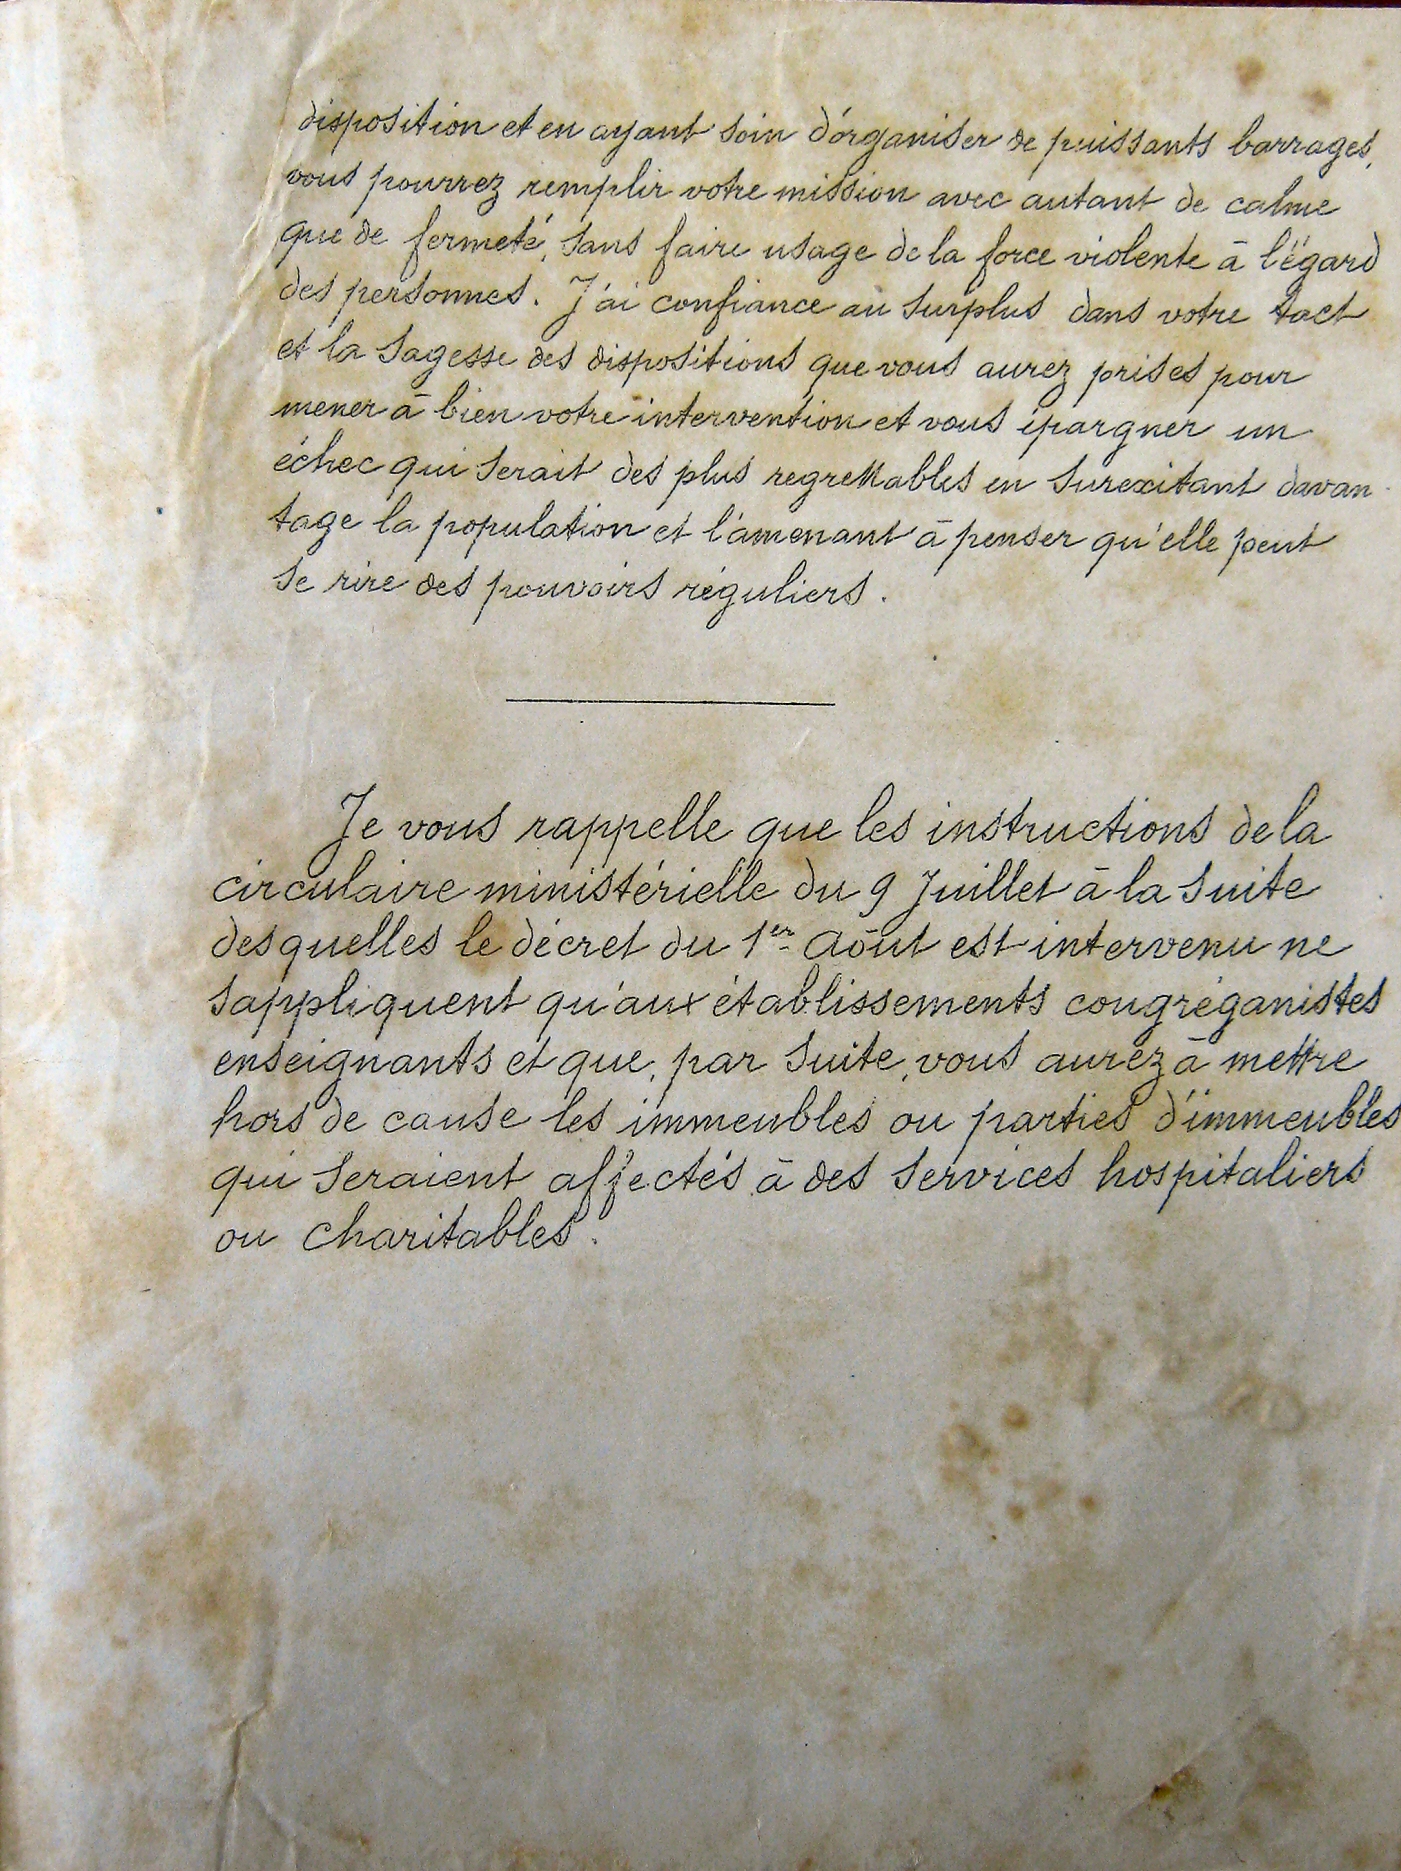 disposition et en ayant soin d'organiser de puissants barrages,
vous pourrez remplir votre mission avec autant de calme
que de fermeté, sans faire usage de la force violente à l'égard
des personnes. J'ai confiance au surplus dans votre tact
et la sagesse des dispositions que vous aurez prises pour
mener à bien votre intervention et vous épargner un
échec qui serait des plus regrettables en surexitant davan-
tage la population et l'amenant à penser qu'elle peut
se rire des pouvoirs réguliers.
Je vous rappelle que les instructions de la
circulaire ministérielle du 9 Juillet à la suite
desquelles le décret du 1er Août est intervenu ne
s'appliquent qu'aux établissements congréganistes
enseignants et que, par suite, vous aurez à mettre
hors de cause les immeubles ou parties d'immeubles
qui seraient affectés à des services hospitaliers
ou charitables.